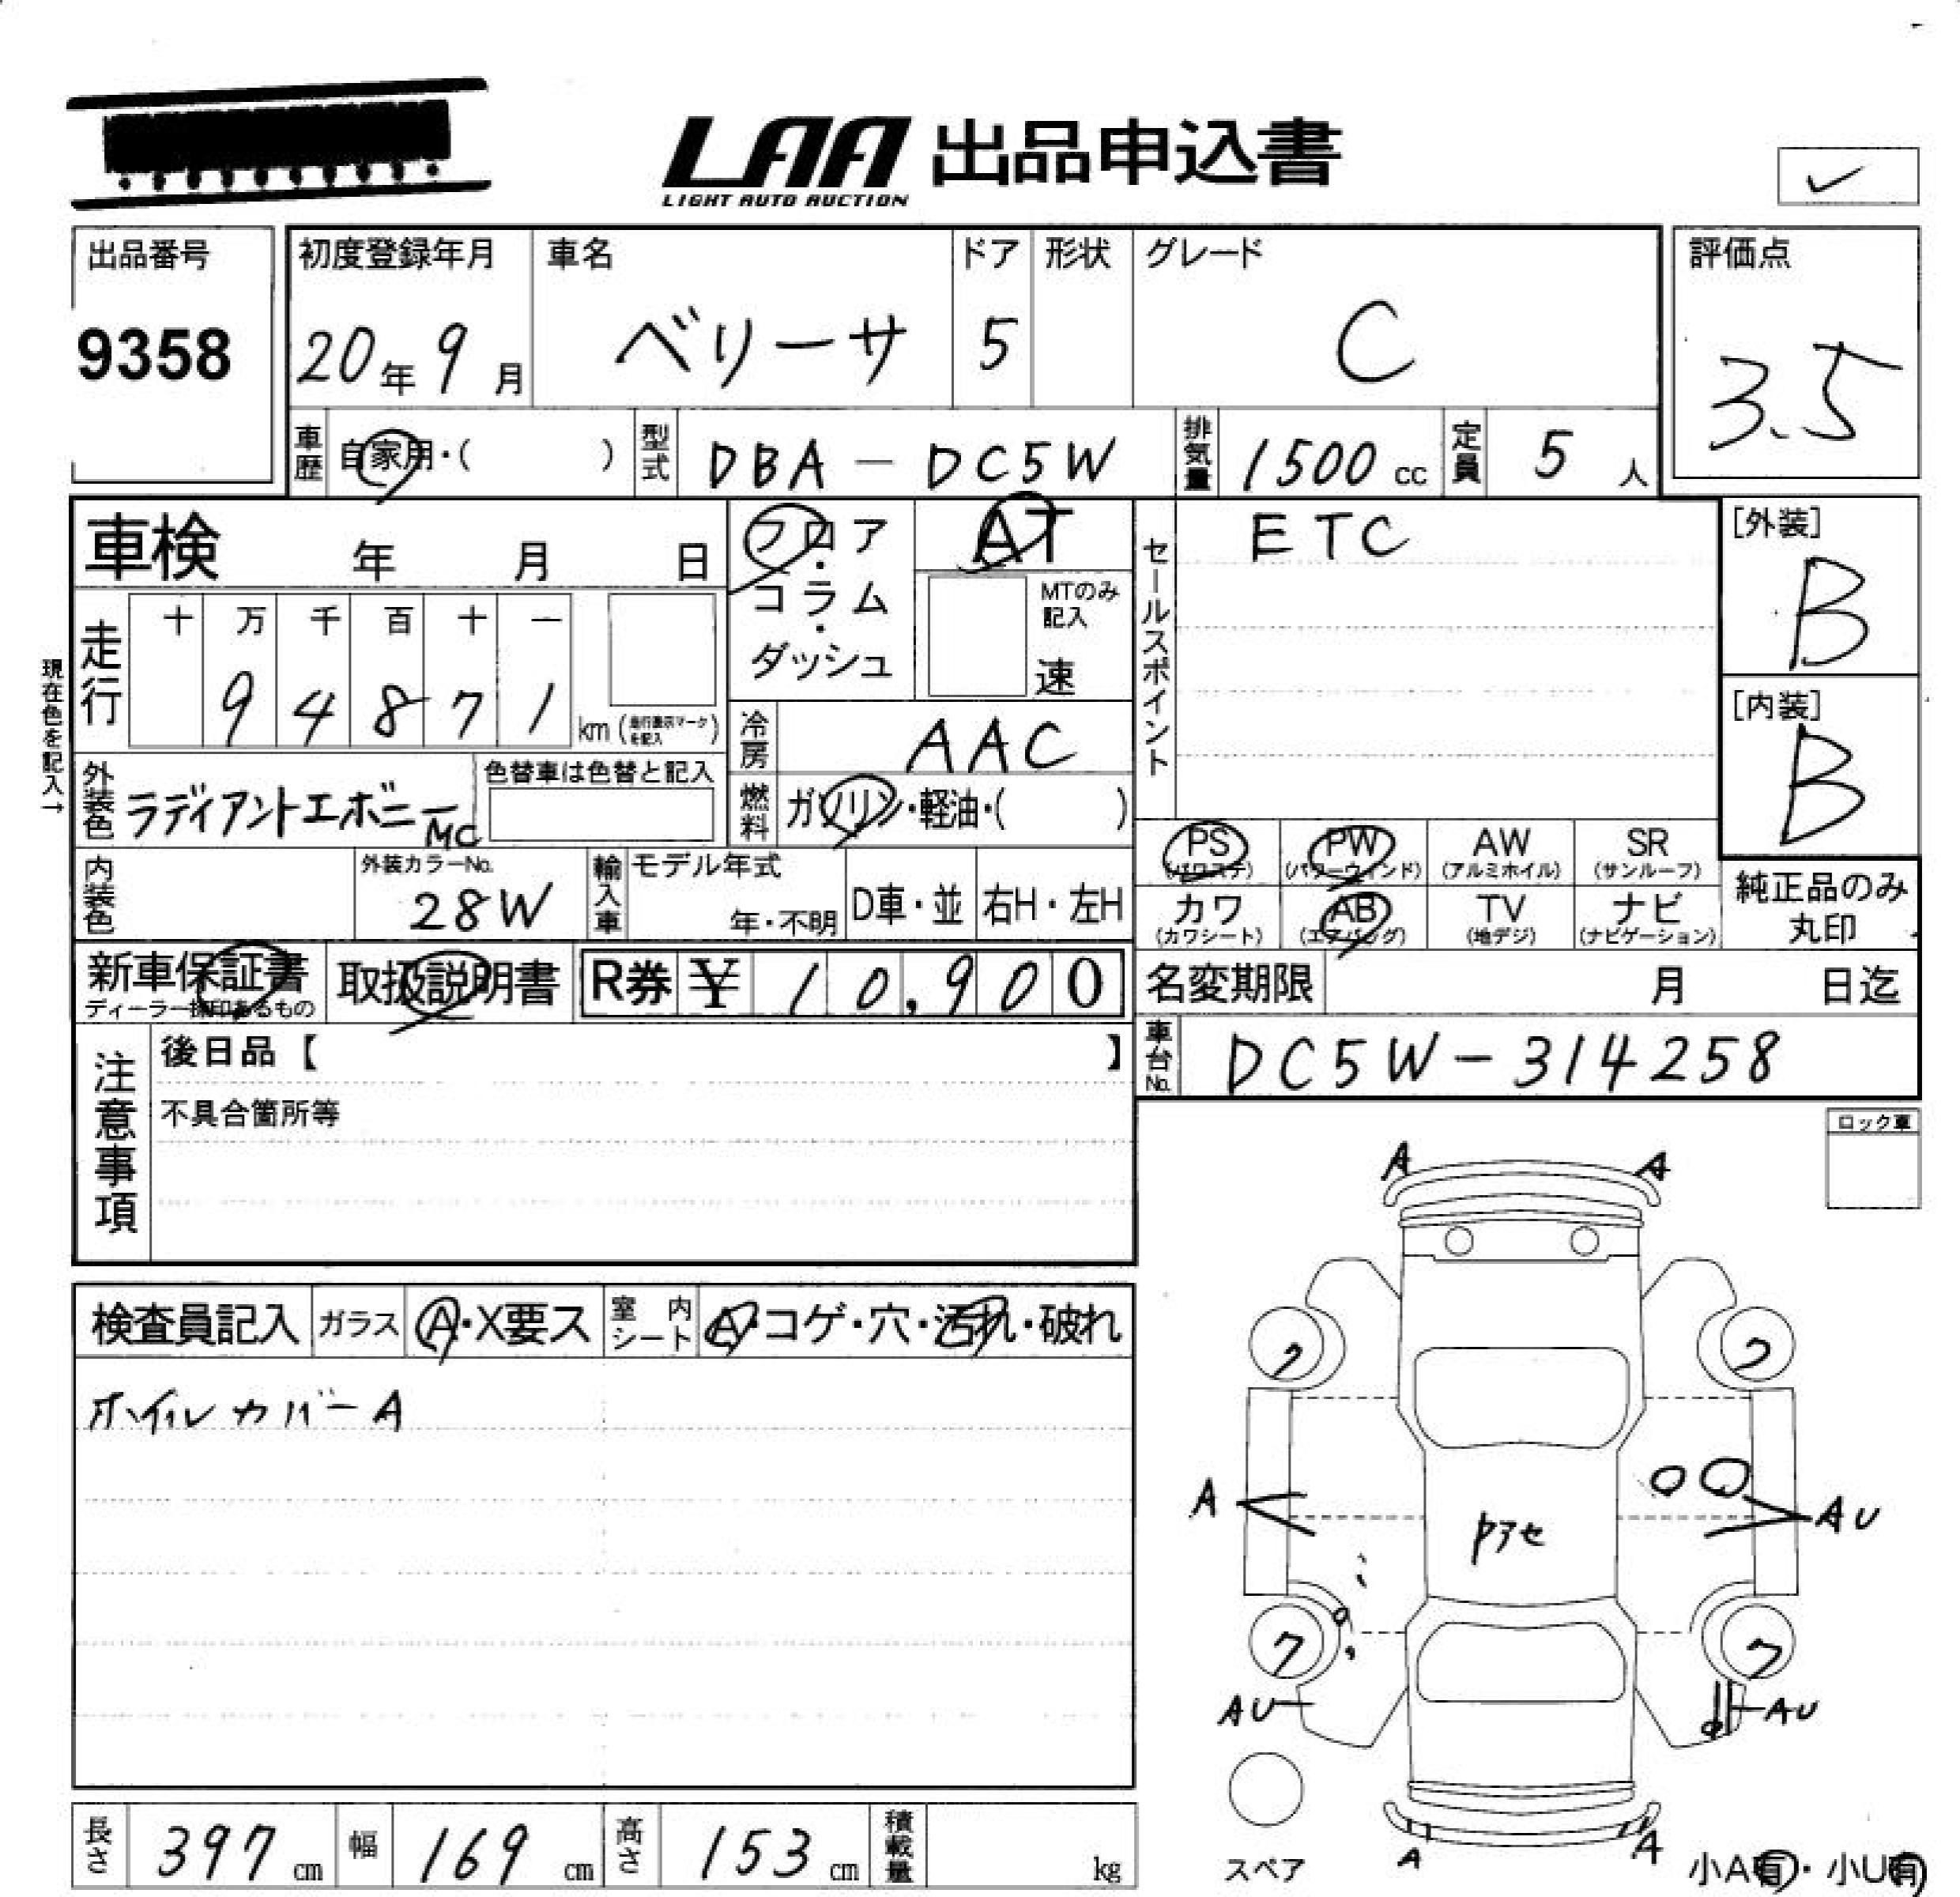 LAA 出品申込書
LIGHT AUTO AUCTION
出品番号
9358
初度登録年月
20年9月
車名
ベリーサ
ドア
5
形状
グレード
C
評価点
3.5
車歴
自家用・( )
型式
DBA-DC5W
排気量
1500cc
定員
5人
車検 年 月 日
フロア・コラム・ダッシュ
AT
MTのみ記入
速
セールスポイント
ETC
[外装]
B
[内装]
B
現在色を記入→
走行
十 万 千 百 十 一
9 4 8 7 1 km (走行表示マークを記入)
冷房
AAC
外装色
ラディアントエボニーMC
色替車は色替と記入
燃料
ガソリン・軽油・( )
内装色
外装カラーNo.
28W
輸入車
モデル年式
年・不明
D車・並
右H・左H
PS (パワステ)
PW (パワーウィンド)
AW (アルミホイル)
SR (サンルーフ)
カワ (カワシート)
AB (エアバッグ)
TV (地デジ)
ナビ (ナビゲーション)
純正品のみ丸印
新車保証書
ディーラー採印あるもの
取扱説明書
R券 ¥ 10,900
名変期限 月 日迄
車台No.
DC5W-314258
注意事項
後日品【 】
不具合箇所等
ロック車
検査員記入
ガラス
A・X要ス
室内シート
A・コゲ・穴・汚れ・破れ
ホイルカバーA
A A
7 7
A AU
7 7
AU AU
A A
スペア
小A有・小U有
長さ 397cm
幅 169cm
高さ 153cm
積載量 kg